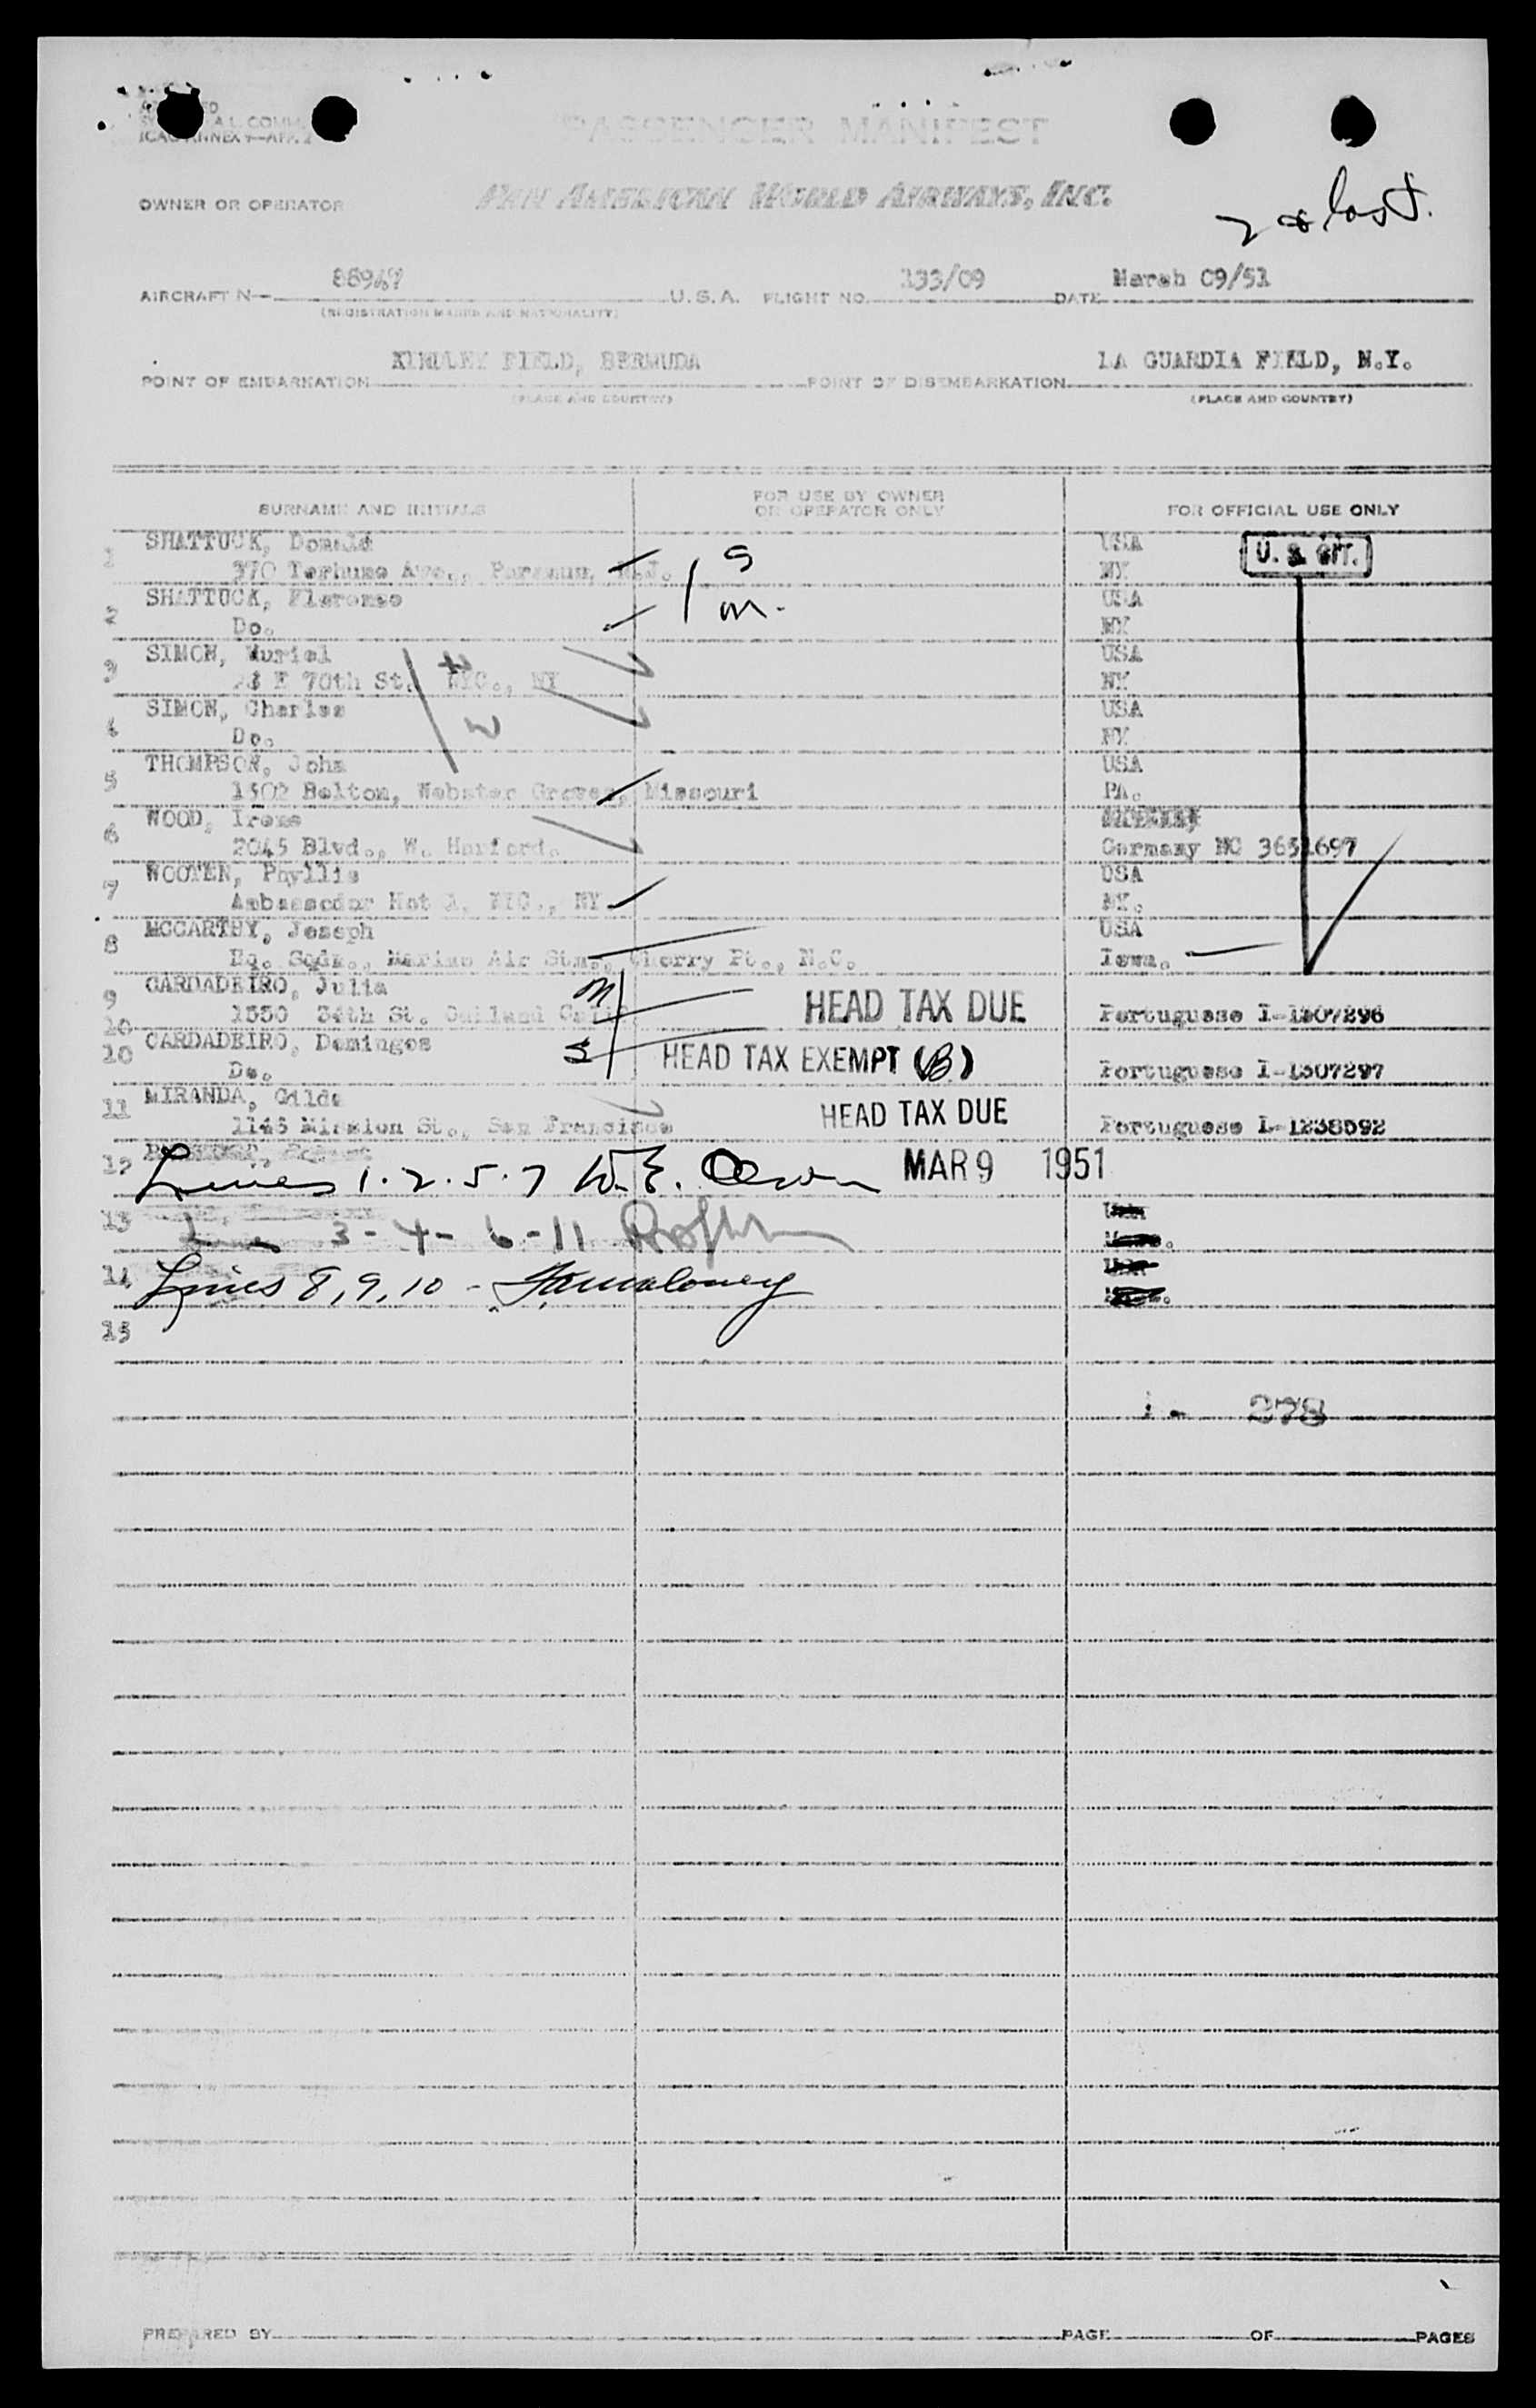 PASSENGER MANIFEST
OWNER OR OPERATOR PAN AMERICAN WORLD AIRWAYS, INC.
2 & last.
AIRCRAFT N— 88947 U.S.A. FLIGHT NO. 133/09 DATE March 09/51
(REGISTRATION MARKS AND NATIONALITY)
POINT OF EMBARKATION KINDLEY FIELD, BERMUDA POINT OF DISEMBARKATION LA GUARDIA FIELD, N.Y.
(PLACE AND COUNTRY) (PLACE AND COUNTRY)
SURNAME AND INITIALS FOR USE BY OWNER OR OPERATOR ONLY FOR OFFICIAL USE ONLY
1 SHATTUCK, Donald S USA U. S. CIT.
370 Terhune Ave., Paramus, N.J. NY
2 SHATTUCK, Florence m. USA
Do. NY
3 SIMON, Muriel USA
E 70th St. NYC., NY NY
4 SIMON, Charles USA
Do. NY
5 THOMPSON, John USA
1302 Belton, Webster Groves, Missouri PA.
6 WOOD, Irene
2045 Blvd., W. Harford. Germany NC 3651697
7 WOOTEN, Phyllis USA
Ambassador Hot NYC., NY NY.
8 MCCARTHY, Joseph USA
Hq. Sqdn., Marine Air Stn., Cherry Pt., N.C. Iowa.
9 CARDADEIRO, Julia m HEAD TAX DUE
34th St. Oakland Calif Portuguese I-1307296
10 CARDADEIRO, Domingos S HEAD TAX EXEMPT (B)
Do. Portuguese I-1307297
11 MIRANDA, Gilda HEAD TAX DUE
1146 Mission St., San Francisco Portuguese I-1238592
12
Lines 1.2.5.7 W.E. MAR 9 1951
13
3-4-6-11
14
Lines 8,9,10 -
15
1 - 278
PREPARED BY PAGE OF PAGES